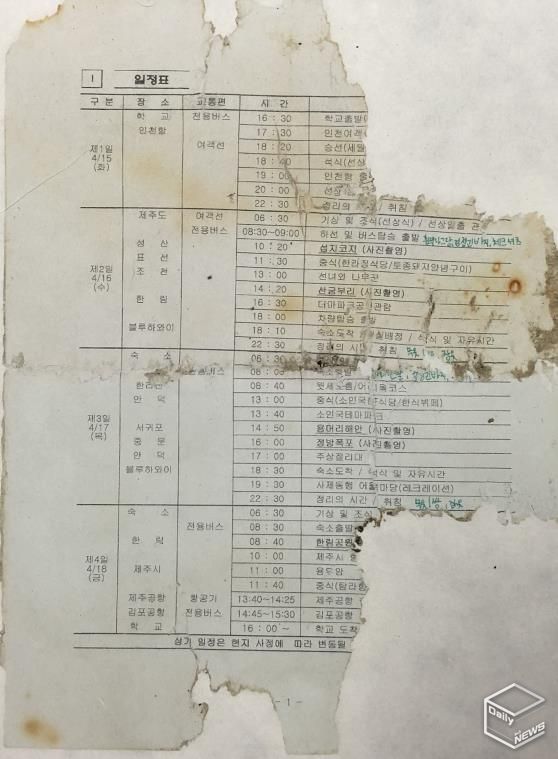 I 일정표
구 분 장 소 교통편 시 간
제1일 4/15 (화)
학 교 전용버스 16 : 30 학교출발(
인천항 17 : 30 인천여객
여객선 18 : 20 승선(세월
18 : 40 석식(선상
19 : 00 인천항 출
20 : 00 선상
22 : 30 정리의 / 취침
제2일 4/16 (수)
제주도 여객선 06 : 30 기상 및 조식(선상식) / 선상일출 관
전용버스 08:30~09:00 하선 및 버스탑승 출발
성 산 10 : 20 섭지코지 (사진촬영)
표 선 11 : 30 중식(한라정식당/토종돼지양념구이)
조 천 13 : 00 선녀와 나무꾼
14 : 20 산굼부리 (사진촬영)
한 림 16 : 30 더마파크공연관람
18 : 00 차량탑승 출발
블루하와이 18 : 10 숙소도착 / 실배정 / 석식 및 자유시간
22 : 30 정리의 시간 / 취침
제3일 4/17 (목)
숙 소 06 : 30
전용버스 08 : 00 숙소출발
한라산 08 : 40 윗세오름/어리목코스
안 덕 13 : 00 중식(소인국 식당/한식뷔페)
13 : 40 소인국테마파크
서귀포 14 : 50 용머리해안 (사진촬영)
중 문 16 : 00 정방폭포 (사진촬영)
안 덕 17 : 00 주상절리대
블루하와이 18 : 30 숙소도착 / 석식 및 자유시간
19 : 30 사제동행 어울 마당(레크레이션)
22 : 30 정리의 시간 / 취침
제4일 4/18 (금)
숙 소 06 : 30 기상 및 조식
전용버스 08 : 30 숙소출발
한 림 08 : 40 한림공원
제주시 10 : 00 제주시
11 : 00 용두암
11 : 40 중식(탐라
제주공항 항공기 13:40~14:25 제주공항
김포공항 전용버스 14:45~15:30 김포공항
학 교 16 : 00 ~ 학교 도착
상기 일정은 현지 사정에 따라 변동될
- 1 -
Daily
NEWS